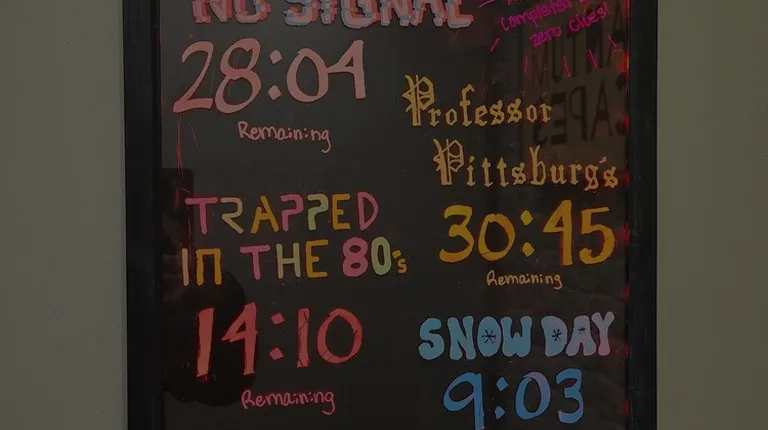 NO SIGNAL
28:04
Remaining
Completed
zero clues!
Professor
Pittsburg's
30:45
Remaining
TRAPPED
IN THE 80's
14:10
Remaining
SNOW DAY
9:03